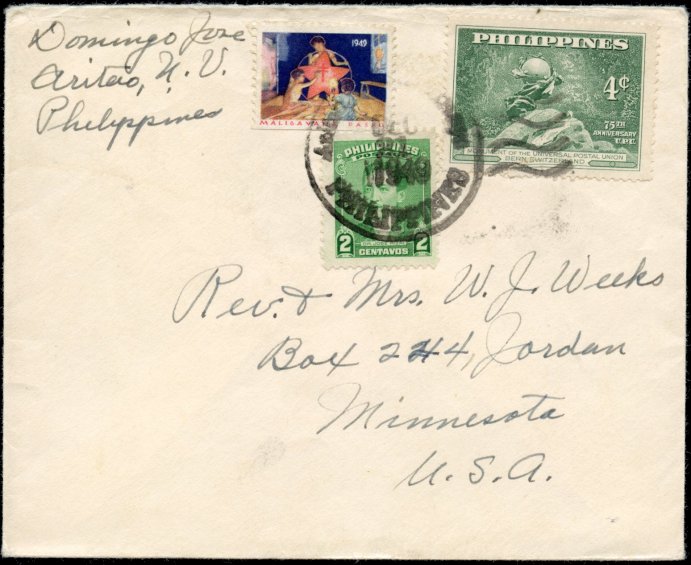 Domingo Jose
Aritao, N.V.
Philippines
1949
MALIGAYANG PASKO
PHILIPPINES
4¢
75TH
ANNIVERSARY
U.P.U.
MONUMENT OF THE UNIVERSAL POSTAL UNION
BERN SWITZERLAND
PHILIPPINES
POSTAGE
DR. JOSE RIZAL
2 CENTAVOS 2
DEC
1949
PHILIPPINES
Rev. & Mrs. W. J. Weeks
Box 244, Jordan
Minnesota
U.S.A.